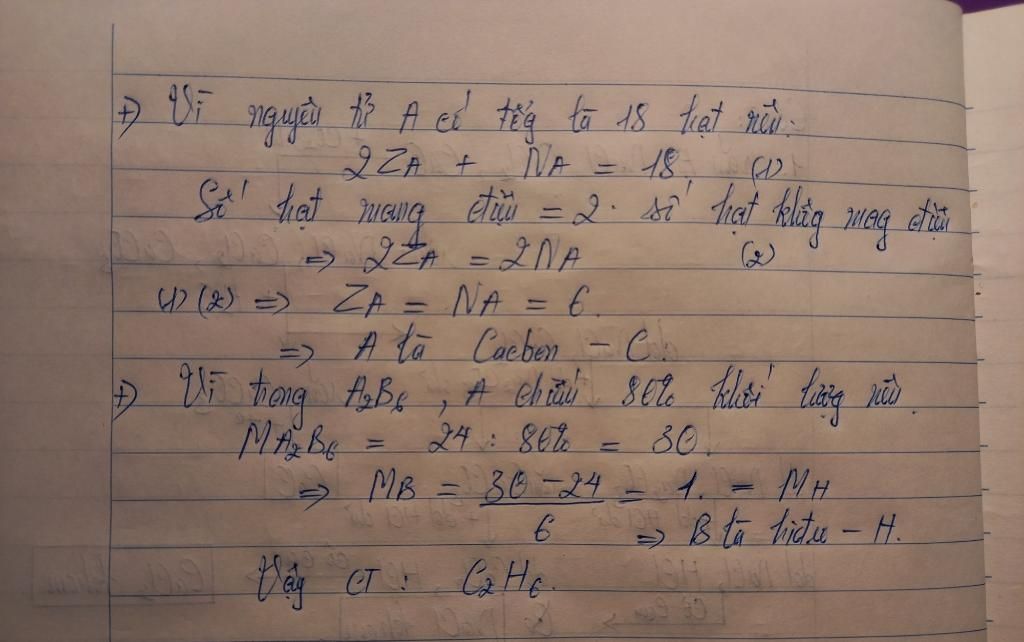 +) Vì nguyên tử A có tổg là 18 hạt nên.
2ZA + NA = 18. (1)
Số hạt mang điện = 2. số hạt khôg mag điện
=> 2ZA = 2NA (2)
(1) (2) => ZA = NA = 6.
=> A là Cacbon - C.
+) Vì trong A2B6, A chiếm 80% khối lượng nên.
MA2B6 = 24 : 80% = 30.
=> MB = 30 - 24 / 6 = 1. = MH
=> B là hiđro - H.
Vậy CT : C2H6.